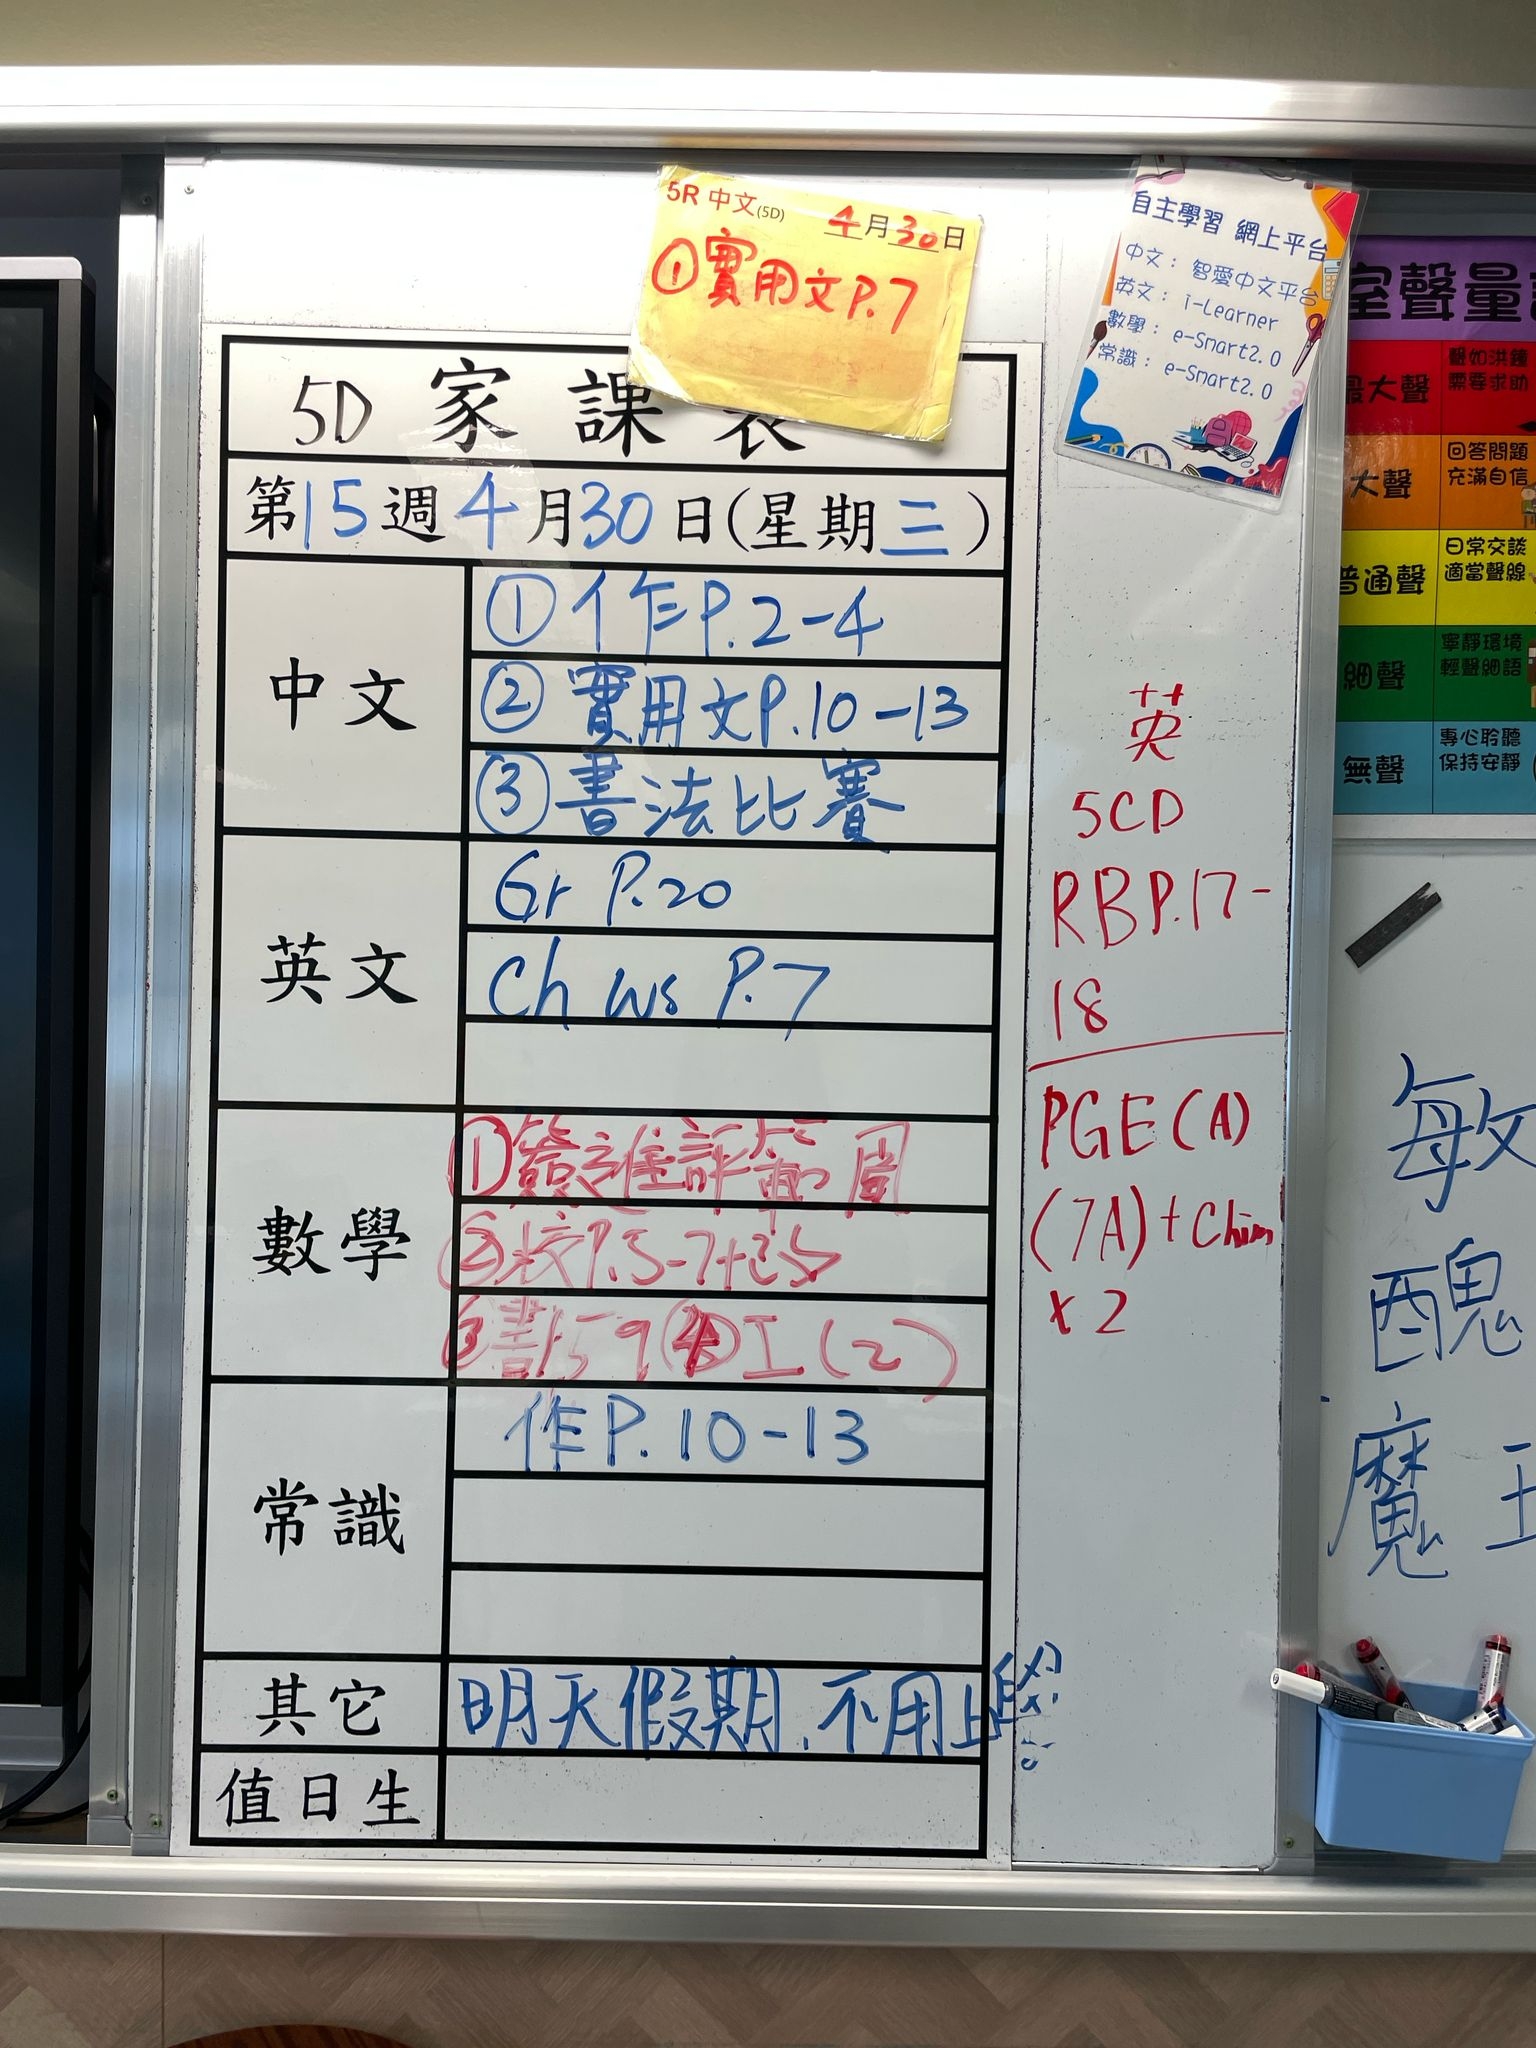 5R 中文(5D) 4月30日
①實用文P.7
自主學習 網上平台
中文：智愛中文平台
英文：i-Learner
數學：e-Smart2.0
常識：e-Smart2.0
5D 家課表
第15週4月30日(星期三)
中文
①作P.2-4
②實用文P.10-13
③書法比賽
英文
Gr P.20
Ch ws P.7
數學
①簽進評範圍
②校P.5-7+25
③書159④工(2)
常識
作P.10-13
其它
明天假期，不用上
值日生
英
5CD
RBP.17-
18
PGE(A)
(7A)+Chin
x2
室聲量
最大聲
聲如洪鐘
需要求助
大聲
回答問題
充滿自信
普通聲
日常交談
適當聲線
細聲
寧靜環境
輕聲細語
無聲
專心聆聽
保持安靜
敏
醜
魔王